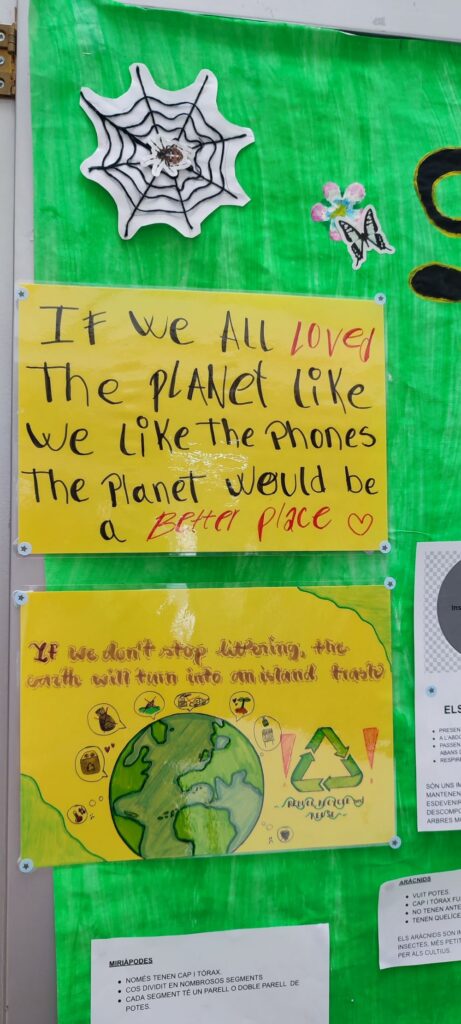 If we All loved
The plANet like
we like the phones
The planet would be
a Better place
If we don't stop littering, the
earth will turn into an island trash
ELS
PRESEN
A L'ABDO
PASSEN
ABANS D
RESPIR
SÓN UNS IM
MANTENEN
ESDEVENIR
DESCOMPO
ARBRES MO
ARÀCNIDS
VUIT POTES.
CAP I TÒRAX FU
NO TENEN ANTE
TENEN QUELÍCE
ELS ARÀCNIDS SÓN IM
INSECTES, MÉS PETIT
PER ALS CULTIUS.
MIRIÀPODES
NOMÉS TENEN CAP I TÒRAX.
COS DIVIDIT EN NOMBROSOS SEGMENTS
CADA SEGMENT TÉ UN PARELL O DOBLE PARELL DE
POTES.